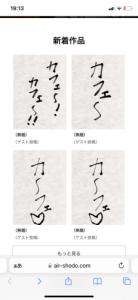 19:13
新着作品
カフェ〜!
カフェ〜!!
カフェ〜
(無題)
(ゲスト投稿)
(無題)
(ゲスト投稿)
カフェ〜♡
カフェ〜♡
(無題)
(ゲスト投稿)
(無題)
(ゲスト投稿)
もっと見る
ぁあ
air-shodo.com